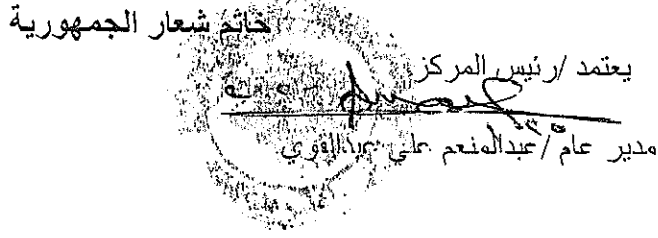 خاتم شعار الجمهورية
يعتمد /رئيس المركز
مدير عام /عبدالمنعم على عبدالقوي